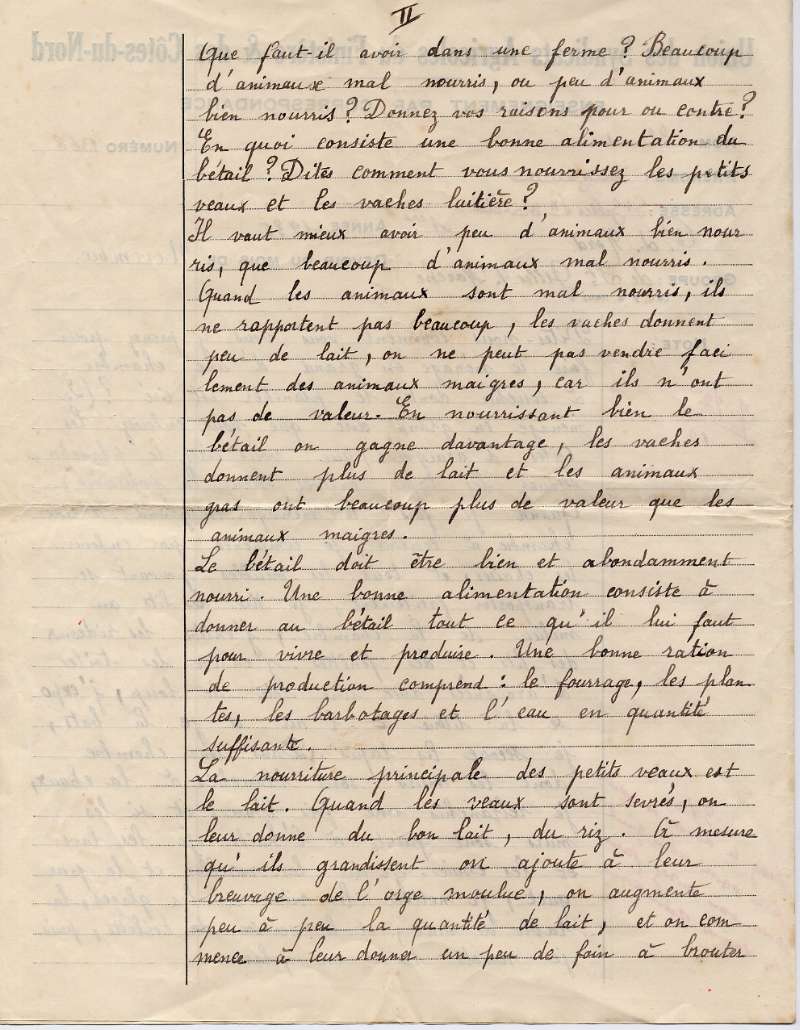 II
Que faut-il avoir dans une ferme ? Beaucoup
d'animaux mal nourris, ou peu d'animaux
bien nourris ? Donnez vos raisons pour ou contre ?
En quoi consiste une bonne alimentation du
bétail ? Dites comment vous nourrissez les petits
veaux et les vaches laitière ?
Il vaut mieux avoir peu d'animaux bien nour
ris, que beaucoup d'animaux mal nourris.
Quand les animaux sont mal nourris, ils
ne rapportent pas beaucoup, les vaches donnent
peu de lait, on ne peut pas vendre faci
lement des animaux maigres, car ils n'ont
pas de valeur. En nourrissant bien le
bétail on gagne davantage, les vaches
donnent plus de lait et les animaux
gras ont beaucoup plus de valeur que les
animaux maigres.
Le bétail doit être bien et abondamment
nourri. Une bonne alimentation consiste à
donner au bétail tout ce qu'il lui faut
pour vivre et produise. Une bonne ration
de production comprend : le fourrage, les plan
tes, les barbotages et l'eau en quantité
suffisante.
La nourriture principale des petits veaux est
le lait. Quand les veaux sont sevrés, on
leur donne du bon lait, du riz. À mesure
qu'ils grandissent on ajoute à leur
breuvage de l'orge moulue, on augmente
peu à peu la quantité de lait, et on com
mence à leur donner un peu de foin à brouter
Union des Syndicats Agricoles du Finistère & des Côtes-du-Nord
ENSEIGNEMENT PAR CORRESPONDANCE
NUMÉRO
ADRESSE
ANNÉE